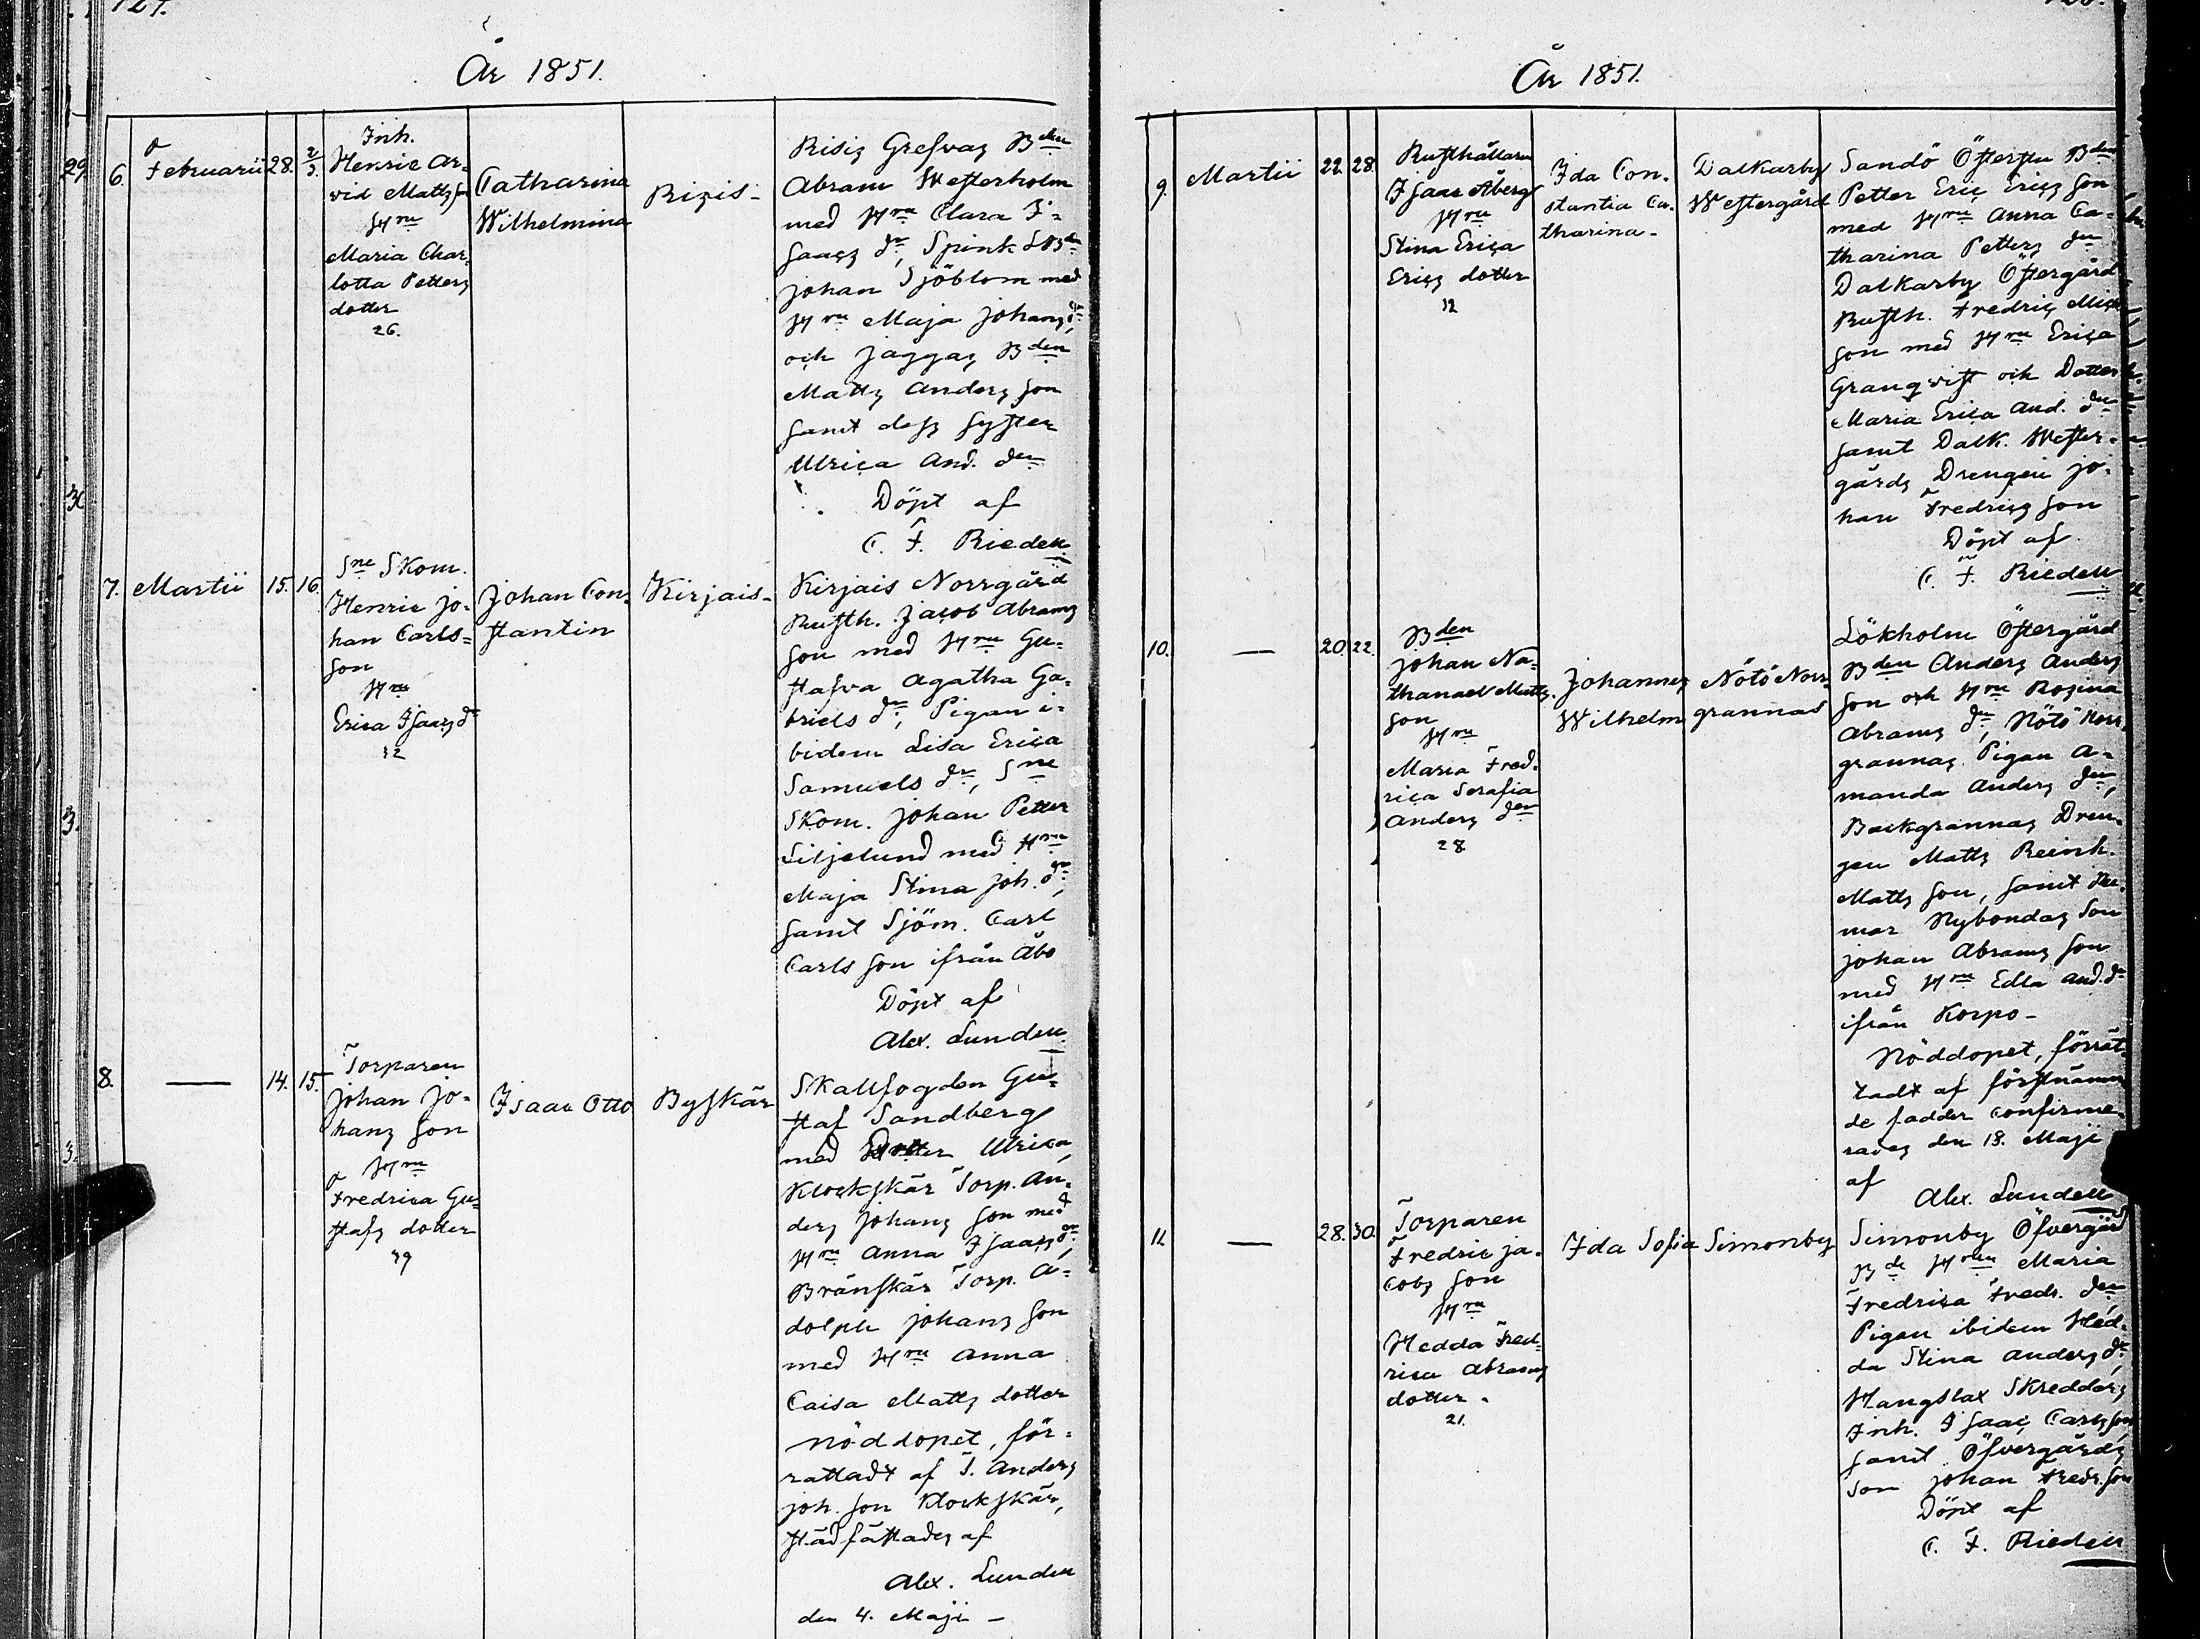 127.
År 1851.
29
6.
Februarii
28.
2/3.
Inh.
Henric Ar-
vid Mattsson
Hru
Maria Char-
lotta Petters
dotter
26.
Catharina
Wilhelmina
Rizis-
Risis Grefvas Bden
Abram Westerholm
med Hru Clara I-
saacs dr, Spink
Johan Sjöblom med
Hru Maja Johans dr,
och Jaggas Bden
Matts Anders son
samt dess syster
Ulrica And. dr
Döpt af
C. F. Riedell
30
7.
Martii
15.
16.
Sne Skom.
Henric Jo-
han Carls-
son
Hru
Erica Isaacs dr
32
Johan Con-
stantin
Kirjais-
Kirjais Norrgård
Rusth. Jacob Abrams
son med Hru Gu-
stafva Agatha Ga-
briels dr, Pigan i-
bidem Lisa Erica
Samuels dr, Sne
Skom. Johan Petter
Liljelund med Hru
Maja Stina Joh. dr,
samt Sjöm. Carl
Carls son ifrån Åbo
Döpt af
Alex. Lundell
3.
8.
—
14.
15.
Torparen
Johan Jo-
hans son
Hru
Fredrica Gu-
stafs dotter
39
Isaac Otto
Byskär
Skallfogden Gu-
staf Sandberg
med Dotter Ulrica,
Klockskär Torp. An-
ders Johans son med
Hru Anna Isaacs dr,
Brännskär Torp. A-
dolph Johans son
med Hru Anna
Caisa Matts dotter
Nöddopet, för-
rattadt af T. Anders
Joh. son Klockskär,
stadfästades af
Alex. Lundell
den 4. Maji -
3.
År 1851.
9.
Martii
22.
28.
Rusthållaren
Isaac Åberg
Hru
Stina Erica
Erics dotter
32
Ida Con-
stantia Ca-
tharina-
Dalkarby
Westergård
Sandö Östersta Bden
Petter Eric Erics son
med Hru Anna Ca-
tharina Petters dr
Dalkarby Östergård
Rusth. Fredric Mich
son med Hru Erica
Granqvist och Dotter
Maria Erica And. dr
samt Dalk. Wester-
gårds Drengen Jo-
han Fredrics son
Döpt af
C. F. Riedell
10.
—
20.
22.
Bden
Johan Na-
thanael Matts
son
Hru
Maria Fred-
rica Serafia
Anders dr
28
Johannes
Wilhelm
Nötö Norr-
grannas
Lökholm Östergård
Bden Anders Anders
son och Hru Rosina
Abrams dr, Nötö Norr
grannas Pigan A-
manda Anders dr,
Backgrannas Dren-
gen Matts Reinh.
Matts son, samt
mar Nybondas Son
Johan Abrams son
med Hru Edla And. dr
ifrån Korpo-
Nöddopet, förrät-
tadt af förstnämn
de fadder confirme-
rades den 18. Maji
af
Alex. Lundell
11.
—
28.
30.
Torparen
Fredric Ja-
cobs son
Hru
Hedda Fred-
rica Abrams
dotter.
21.
Ida Sofia
Simonby
Simonby Öfvergård
Bde Hrun Maria
Fredrica Fredr. dr
Pigan ibidem Hed-
da Stina Anders dr,
Hangslax Skredders
Inh. Isaac Carls son,
samt Öfvergårds
Son Johan Fredr. son
Döpt af
C. F. Riedell